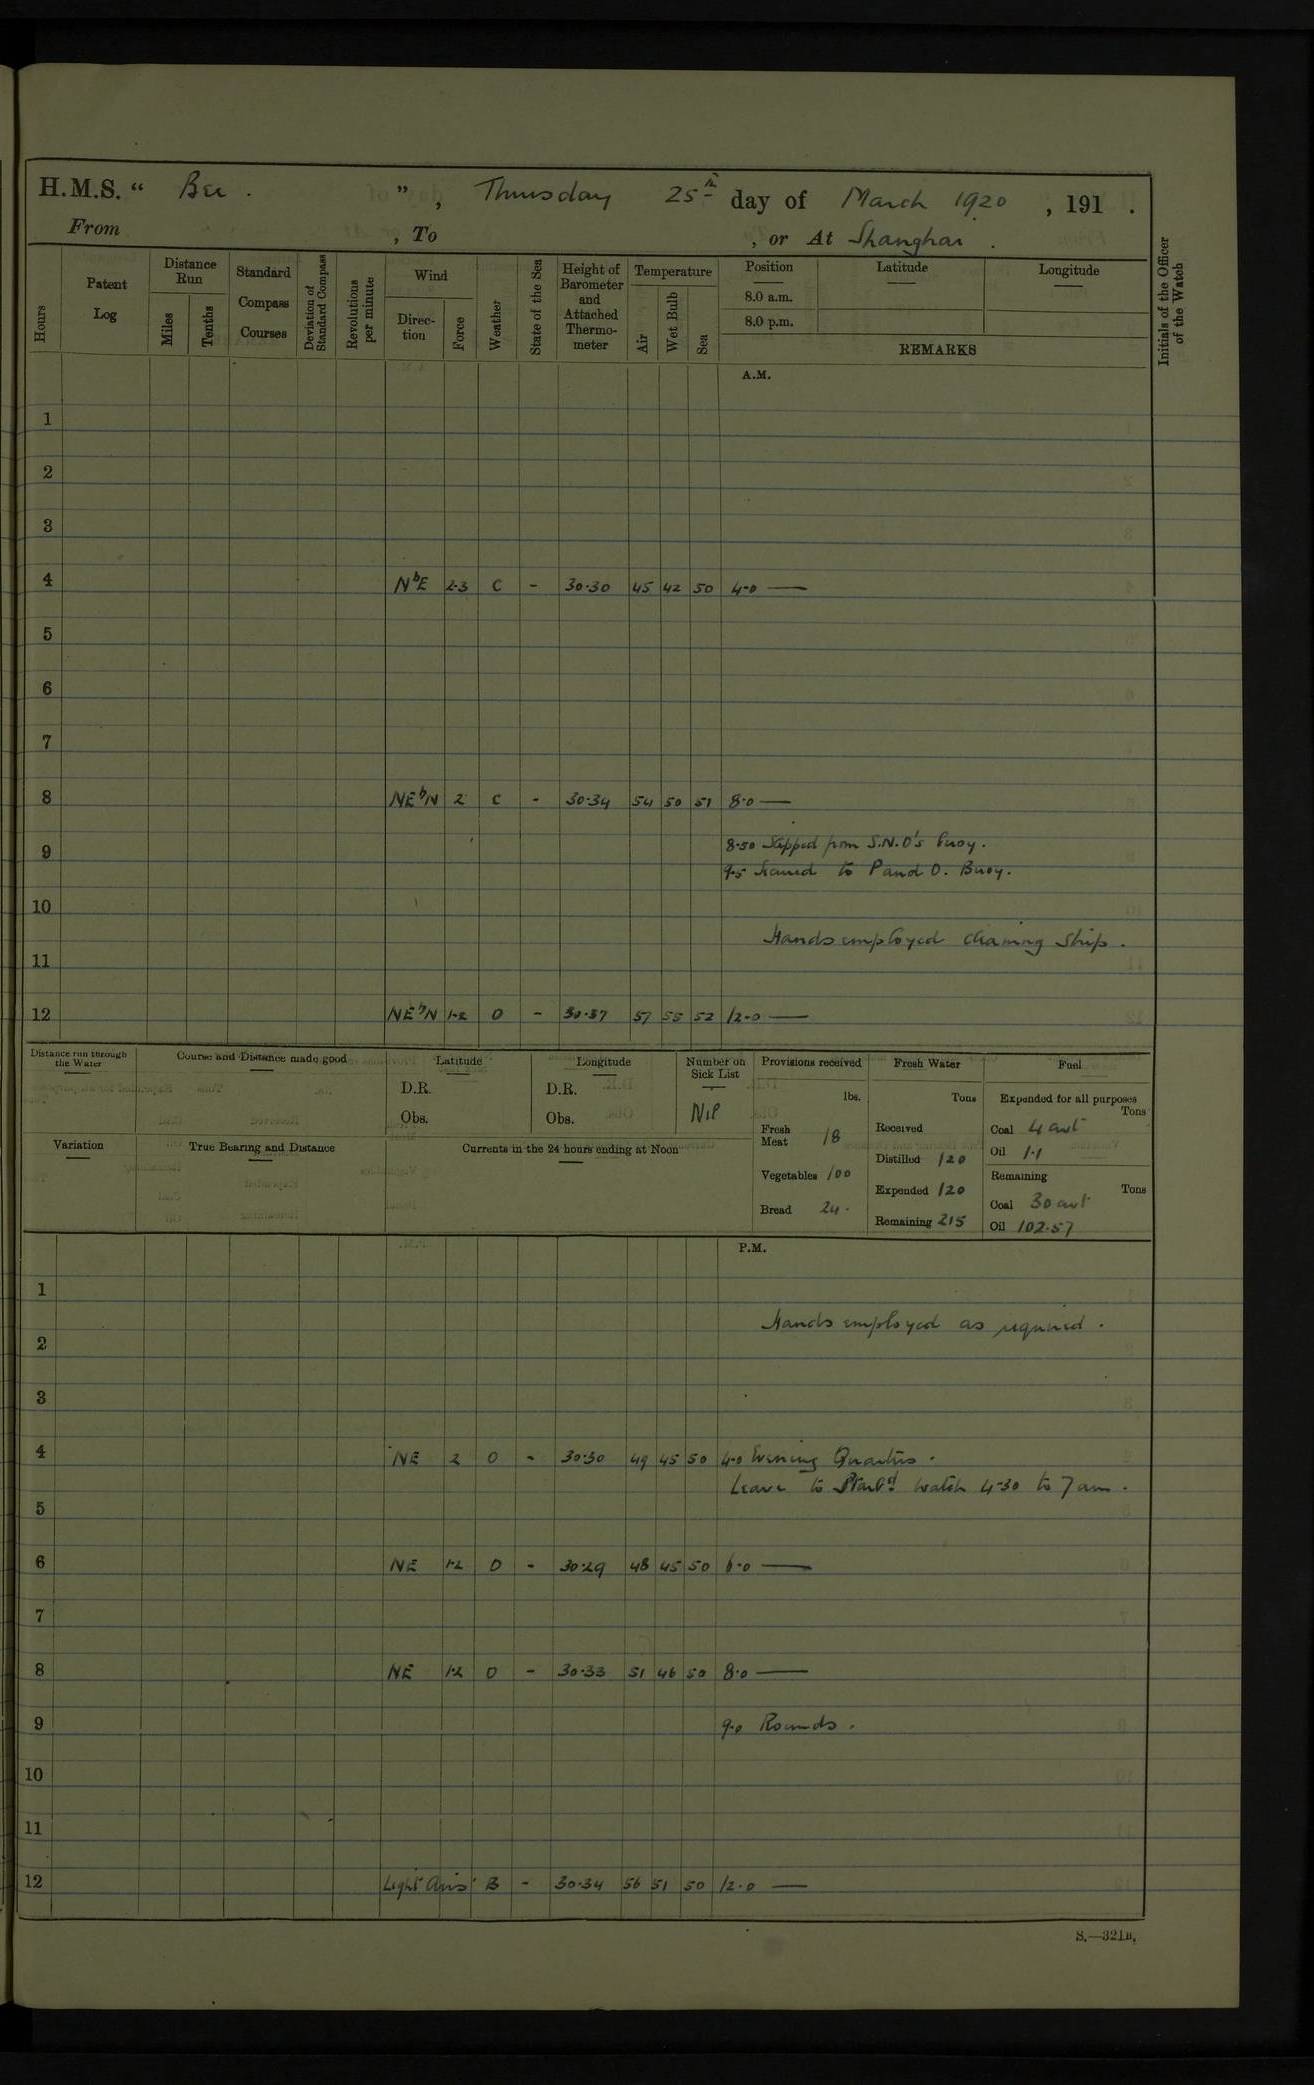 H.M.S. " Bee. ", Thursday 25th day of March 1920, 191 .
From , To , or At Shanghai.
Hours
Patent Log
Distance Run
Miles
Tenths
Standard Compass Courses
Deviation of Standard Compass
Revolutions per minute
Wind
Direc-tion
Force
Weather
State of the Sea
Height of Barometer and Attached Thermo-meter
Temperature
Air
Wet Bulb
Sea
Position
8.0 a.m.
8.0 p.m.
Latitude
Longitude
REMARKS
Initials of the Officer of the Watch
A.M.
1
2
3
4 NbE 2.3 C - 30.30 45 42 50 4.0 —
5
6
7
8 NEbN 2 C - 30.34 54 50 51 8.0 —
8.50 Slipped from S.N.O's buoy.
9 9.5 Secured to P and O. Buoy.
10
Hands employed cleaning Ship.
11
12 NEbN 1-2 O - 30.37 57 55 52 12.0 —
Distance run through the Water
Course and Distance made good
Latitude
D.R.
Obs.
Longitude
D.R.
Obs.
Number on Sick List
Nil
Variation
True Bearing and Distance
Currents in the 24 hours ending at Noon
Provisions received
lbs.
Fresh Meat 18
Vegetables 100
Bread 24.
Fresh Water
Tons
Received
Distilled 120
Expended 120
Remaining 215
Fuel
Expended for all purposes
Tons
Coal 4 cwt
Oil 1.1
Remaining
Tons
Coal 30 cwt
Oil 102.57
P.M.
1
Hands employed as required.
2
3
4 NE 2 O - 30.30 49 45 50 4.0 Evening Quarters.
Leave to Starbd watch 4-30 to 7 am.
5
6 NE 1-2 O - 30.29 48 45 50 6.0 —
7
8 NE 1-2 O - 30.33 51 46 50 8.0 —
9 9.0 Rounds.
10
11
12 Light Airs B - 30.34 56 51 50 12.0 —
S.—321B.